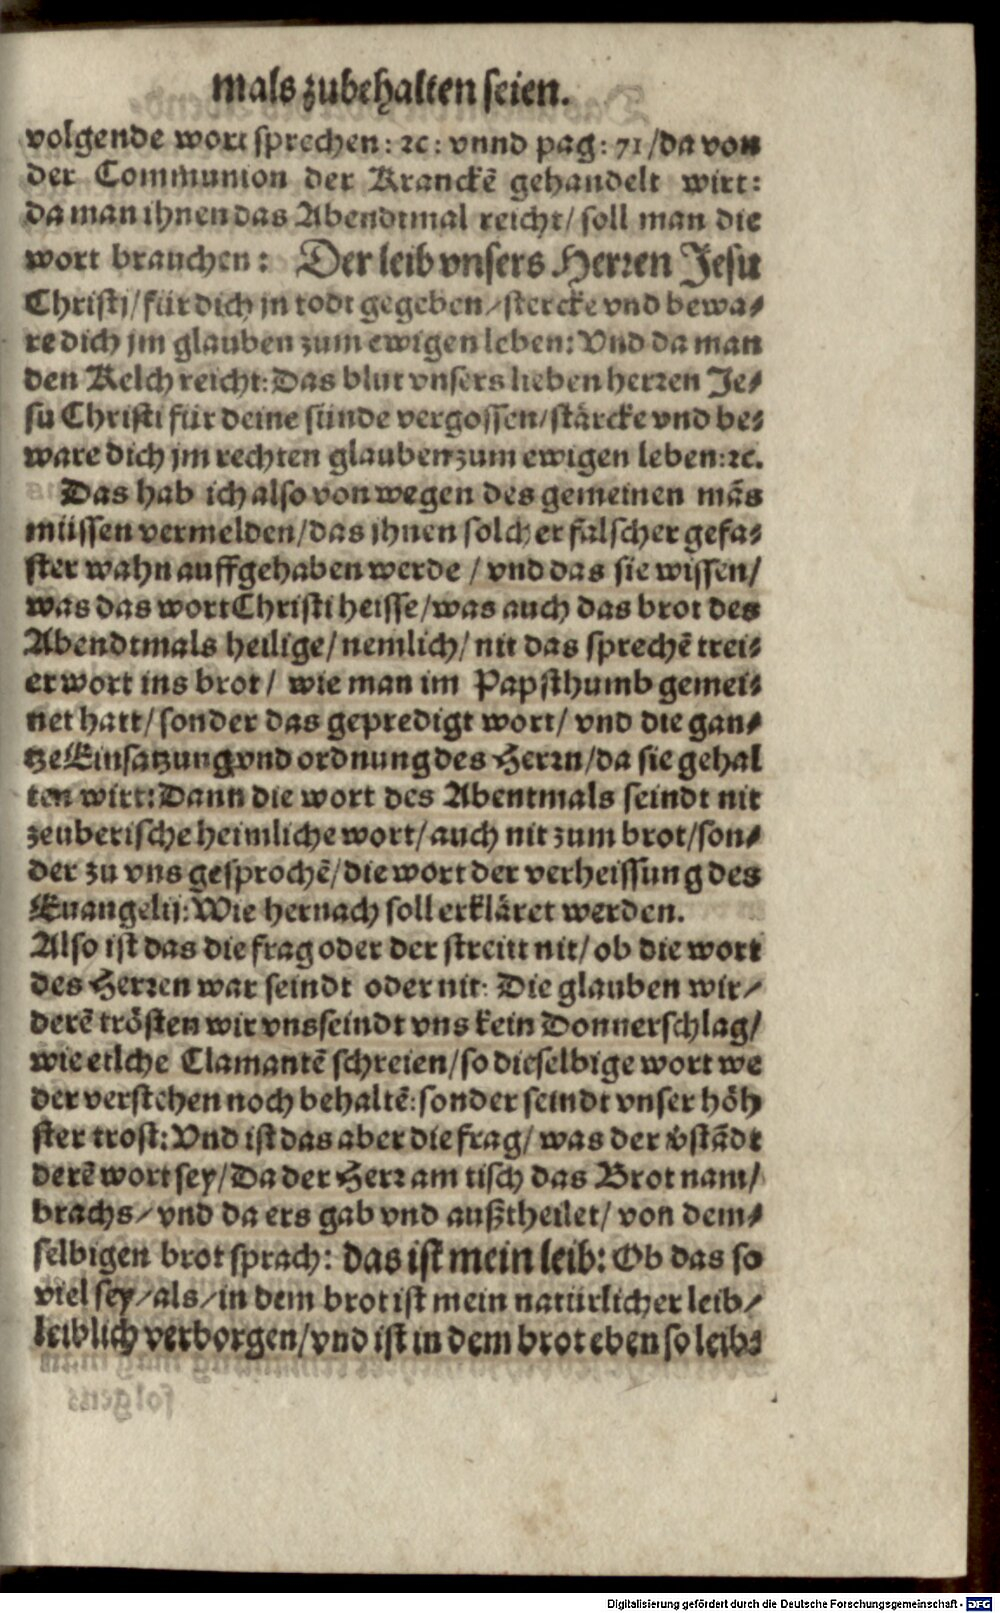 mals zubehalten seien.
volgende wort sprechen: ꝛc: vnnd pag: 71/da von
der Communion der Kranckē gehandelt wirt:
da man ihnen das Abendtmal reicht/ soll man die
wort brauchen: Der leib vnsers Herꝛen Jesu
Christi/ für dich jn todt gegeben/ stercke vnd bewa⸗
re dich jm glauben zum ewigen leben: Vnd da man
den Kelch reicht: Das blut vnsers lieben herꝛen Je⸗
su Christi für deine sünde vergossen/ stärcke vnd be⸗
ware dich jm rechten glauben zum ewigen leben: ꝛc.
Das hab ich also von wegen des gemeinen mās
müssen vermelden/ das ihnen solcher falscher gefa⸗
ster wahn auffgehaben werde / vnd das sie wissen/
was das wort Christi heisse/ was auch das brot des
Abendtmals heilige/ nemlich/ nit das sprechē trei⸗
er wort ins brot/ wie man im Papsthumb gemei⸗
net hatt/ sonder das gepredigt wort/ vnd die gan⸗
tze Einsatzung vnd ordnung des Herꝛn/ da sie gehal
ten wirt: Dann die wort des Abentmals seindt nit
zeuberische heimliche wort/ auch nit zum brot/ son⸗
der zu vns gesprochē/ die wort der verheissung des
Euangelij: Wie hernach soll erkläret werden.
Also ist das die frag oder der streitt nit/ ob die wort
des Herꝛen war seindt oder nit: Die glauben wir/
derē trösten wir vns seindt vns kein Donnerschlag/
wie etlche Clamantē schreien/ so dieselbige wort we
der verstehen noch behaltē: sonder seindt vnser höh
ster trost: Vnd ist das aber die frag/ was der v̄stādt
derē wort sey/ Da der Herꝛ am tisch das Brot nam/
brachs/ vnd da ers gab vnd außtheilet/ von dem⸗
selbigen brot sprach: das ist mein leib: Ob das so
viel sey/ als/ in dem brot ist mein natürlicher leib/
leiblich verborgen/ vnd ist in dem brot eben so leib⸗
Digitalisierung gefördert durch die Deutsche Forschungsgemeinschaft - DFG